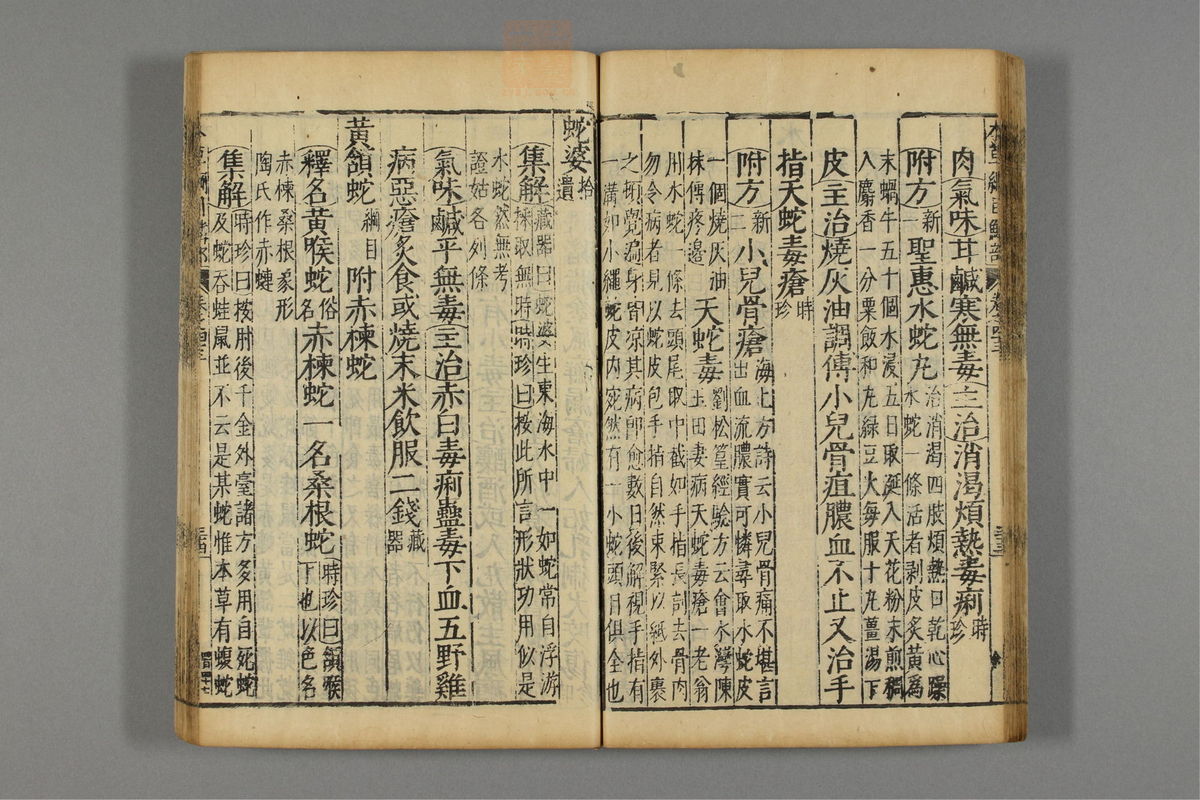 肉氣味甘鹹寒無毒主治消渴煩熱毒痢時珍
附方新一聖惠水蛇丸治消渴四肢煩熱口乾心躁水蛇一條活者剥皮炙黃爲
末蝸牛五十個水浸五日取涎入天花粉末煎稠
入麝香一分粟飯和丸緑豆大每服十丸薑湯下
皮主治燒灰油調傅小兒骨疽膿血不止又治手
指天蛇毒瘡時珍
附方新二小兒骨瘡海上方詩云小兒骨痛不堪言出血流膿實可憐尋取水蛇皮
一個燒灰油抹傅疼邊天蛇毒劉松篁經驗方云會水灣陳玉田妻病天蛇毒瘡一老翁
用水蛇一條去頭尾取中截如手指長剖去骨肉
勿令病者見以蛇皮包手指自然束緊以紙外裹
之頓覺遍身皆凉其病卽愈數日後解視手指有
一溝如小繩蛇皮內宛然有一小蛇頭目俱全也
蛇婆拾遺
集解藏器曰蛇婆生東海水中一如蛇常自浮游採取無時時珍曰按此所言形狀功用似是
水蛇然無考
證姑各列條
氣味鹹平無毒主治赤白毒痢蠱毒下血五野雞
病惡瘡炙食或燒末米飲服二錢藏器
黃頷蛇綱目附赤楝蛇
釋名黃喉蛇俗名赤楝蛇一名桑根蛇時珍曰頷喉下也以色名
赤楝桑根象形
陶氏作赤蝀
集解時珍曰按肘後千金外臺諸方多用自死蛇及蛇吞蛙鼠並不云是某蛇惟本草有蝮蛇